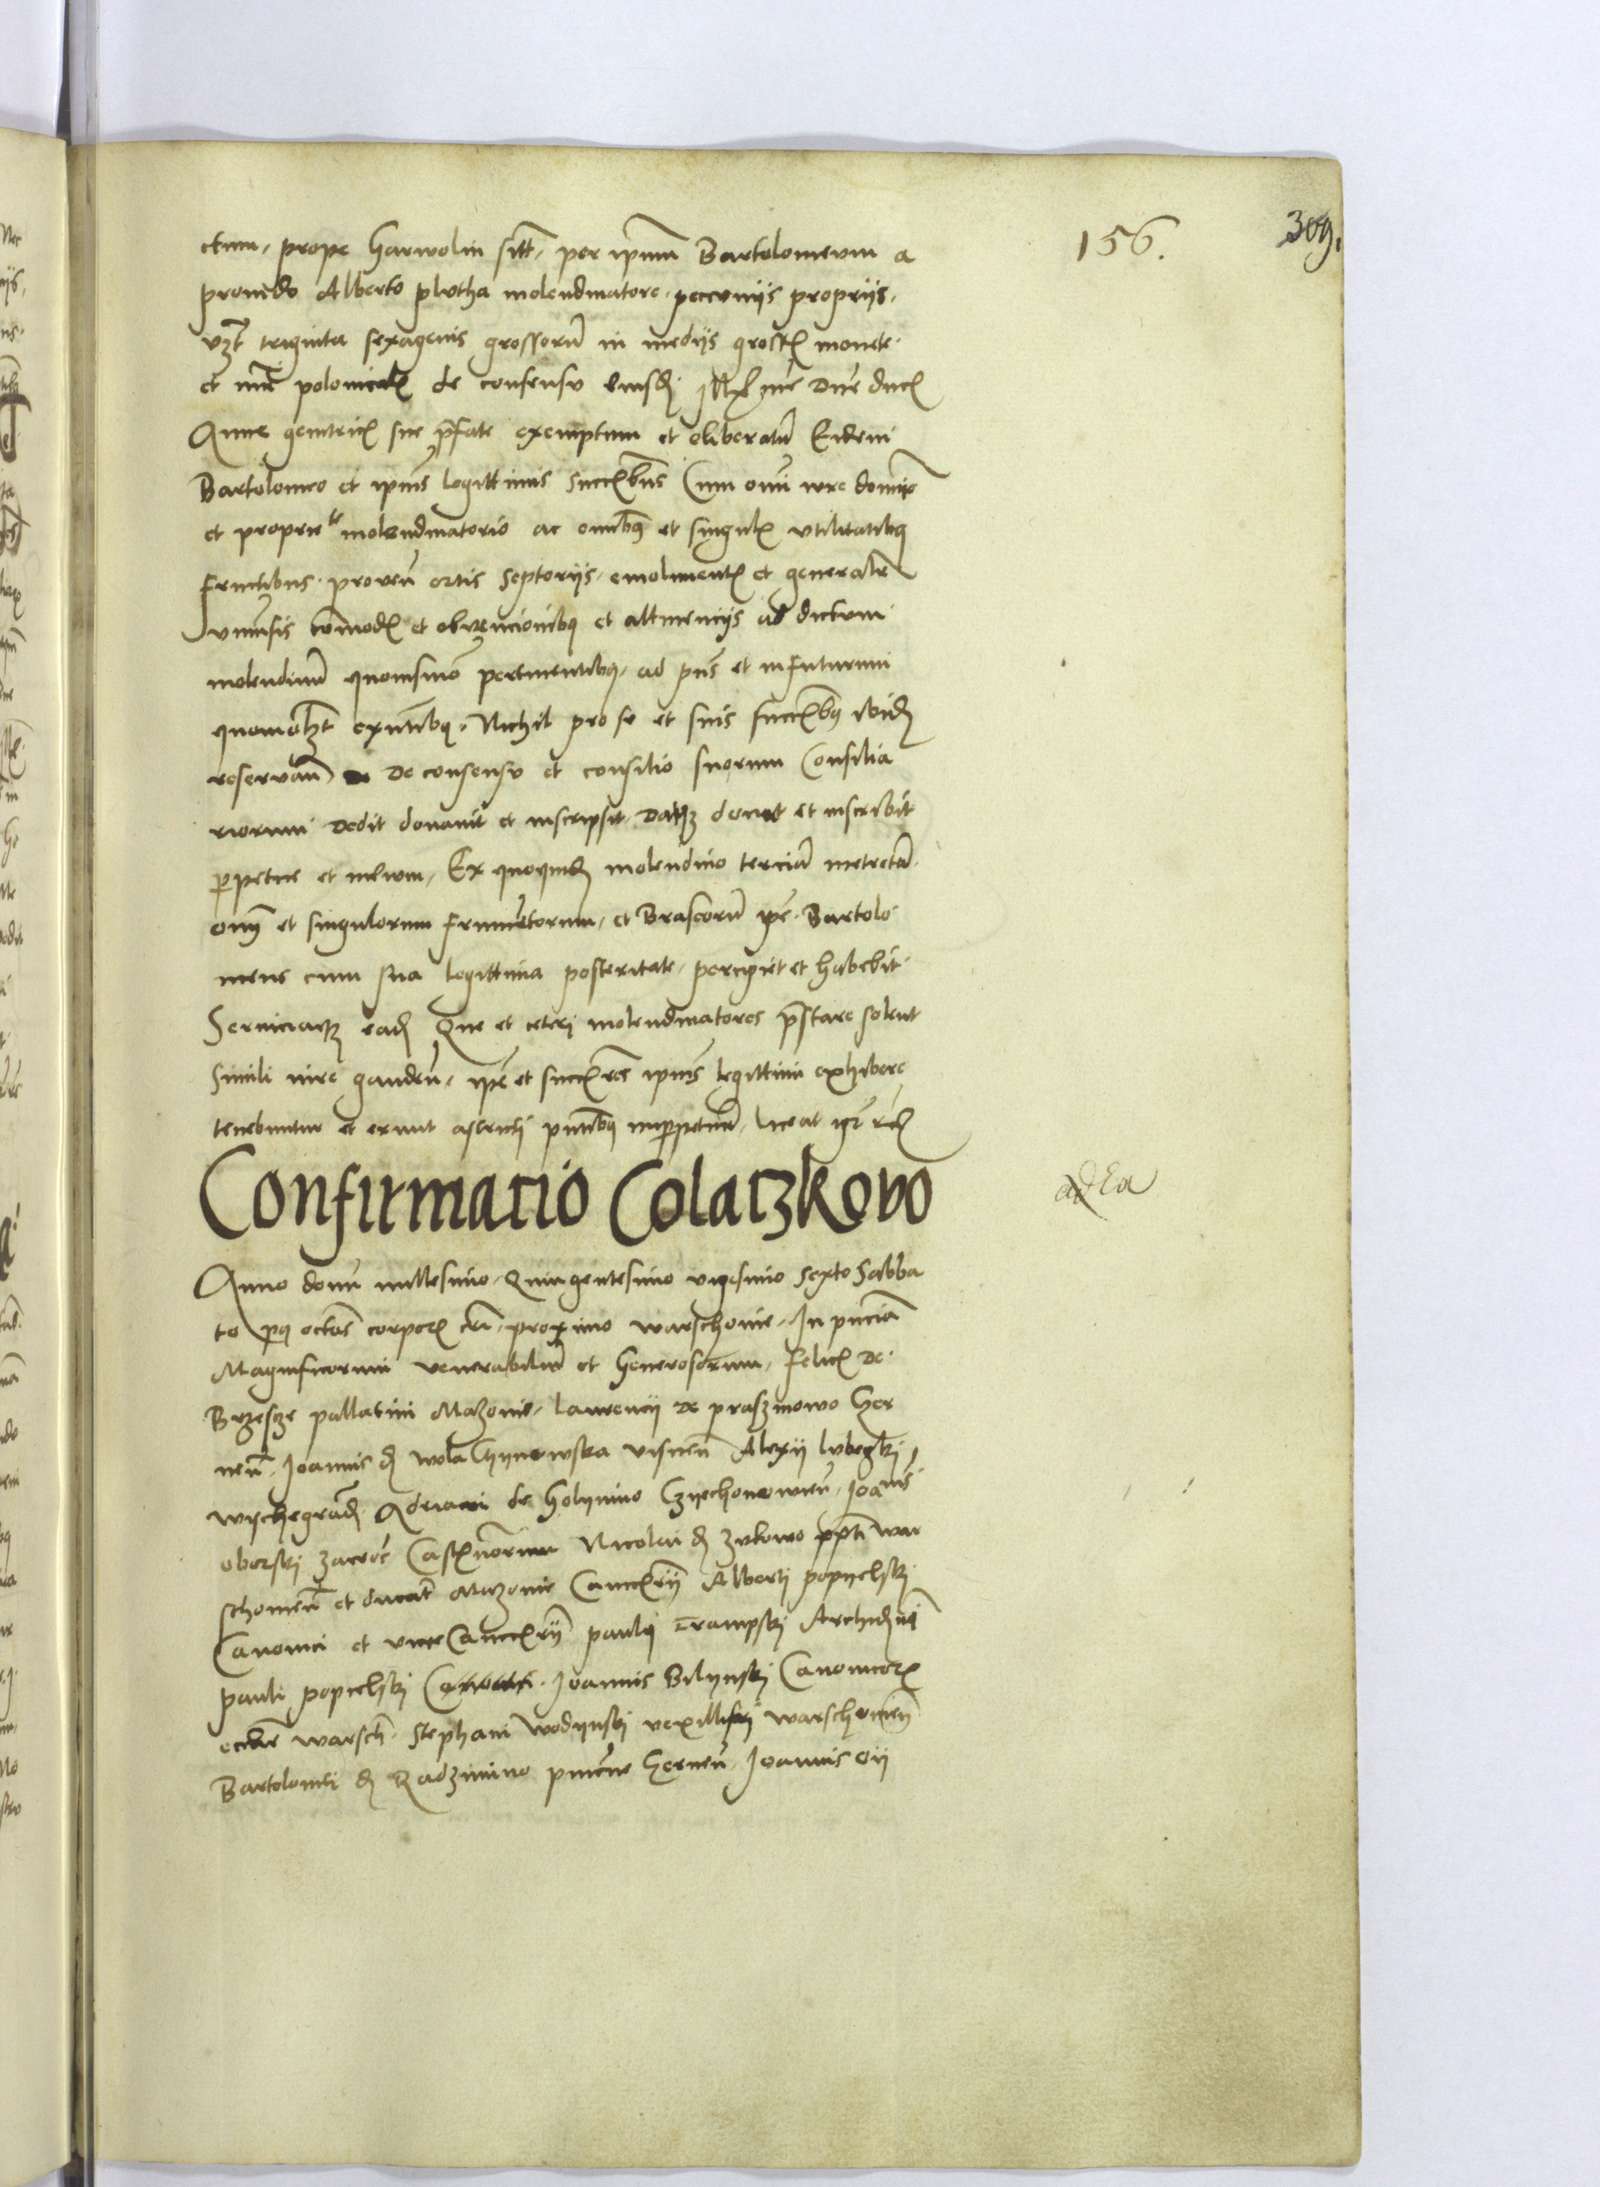 156.
309.
ctum, prope Garwolin sitt, per ipmm Bartolomeum a
provido Alberto plutha molendinatore, peccuniis propriis,
vzt triginta sexagenis grossorum in mediis grossis monete
et polonicalis de consensu eiusd Illme Dne ducis
Anne genitricis sue pfate exemptum et eliberatum Eidem
Bartolomeo et ipius legittimis succribus Cum omni iure dominio
et proprietate molendinatorio ac omnibus et singulis utilitatibus
fructibus proven ortis septoriis, emolimentis et generalr
universis comodis et obvencionibus et attinenciis ad dictum
molendinum quovismodo pertinentibus, ad pns et in futurum
quomodolzt exntibus, Nichil pro se et suis succribus ibid
reservan de consensu et consilio suorum Consilia
riorum dedit donavit et inscripsit Datqz donat et inscribit
perpetue et in evum, Ex quoquid molendino terciam metretam
omn et singulorum frumentorum, et Brascorum ipe Bartolo
meus cum sua legittima posteritate, percipiet et habebit
Serviciaqz ead Que et ceteri molendinatores pstare solent
simili iure gauden, ipe et succres ipius legittimi exhibere
tenebuntur et erunt astricti pntibus inperpetuum, liceat
Confirmacio Colaczkowo
ad Ea
Anno domi millesimo Quingentesimo vigesimo sexto Sabba
to octas corporis cri, proximo warschovie, In pncia
Magnificorum venerabilium et Generosorum, felicis de
Brzescze pallatini Mazovie, laurencij de praszmowo Czer
nen, Joannis d wola Chynowska visnen Alexij lubegski
wyschegrad Adriani de Golymino Czyechonowien, Joanis
oborski zacroc Castnorum Nicolai d zukowo ppti war
schovien et ducat Mazovie Cancrij Alberti popyelski
Canonici et viceCancrij pauli Trampski Archidni
pauli popielski Joannis Bilynski Canonicor
eccle warsch Stephani wodynski vexilliferi warschovien
Bartolomei d Radzimino pincerne Czernen, Joannis